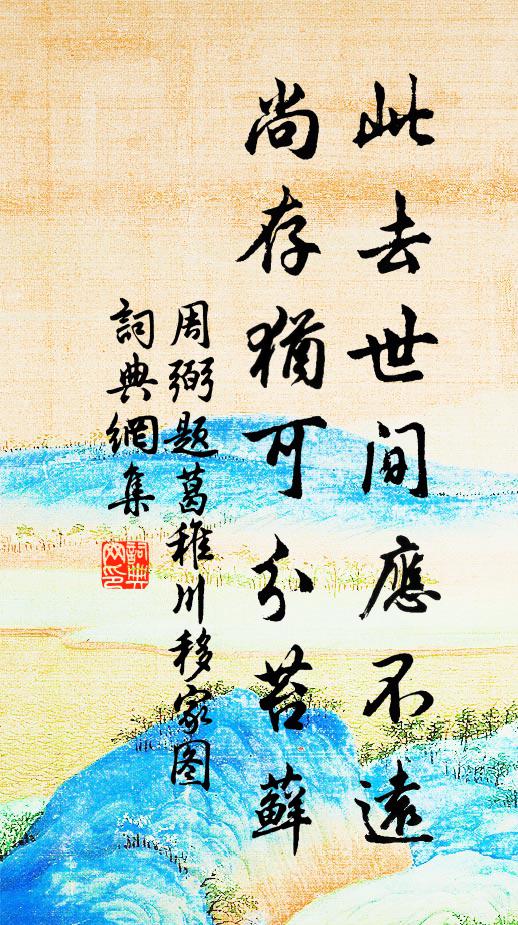 此去世間應不遠
尚存猶可分苔蘚
周弼题葛稚川移家图
詞典網集
詞典
网印